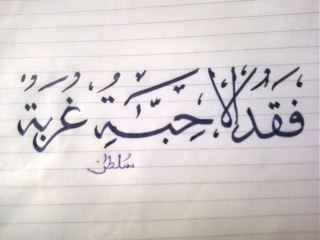 فَقْدُ الأَحِبَّةِ غُرْبَةٌ
سلطان